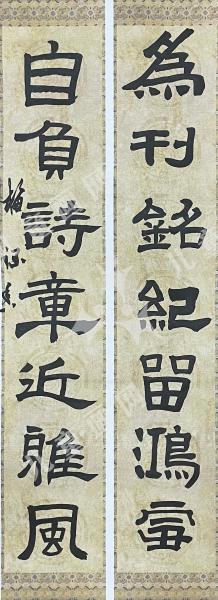 為刊銘紀留鴻雪
自負詩章近雅風